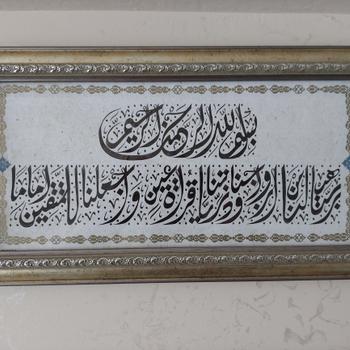 بسم الله الرحمن الرحيم
ربنا هب لنا من ازواجنا وذرياتنا قرة اعين واجعلنا للمتقين اماما